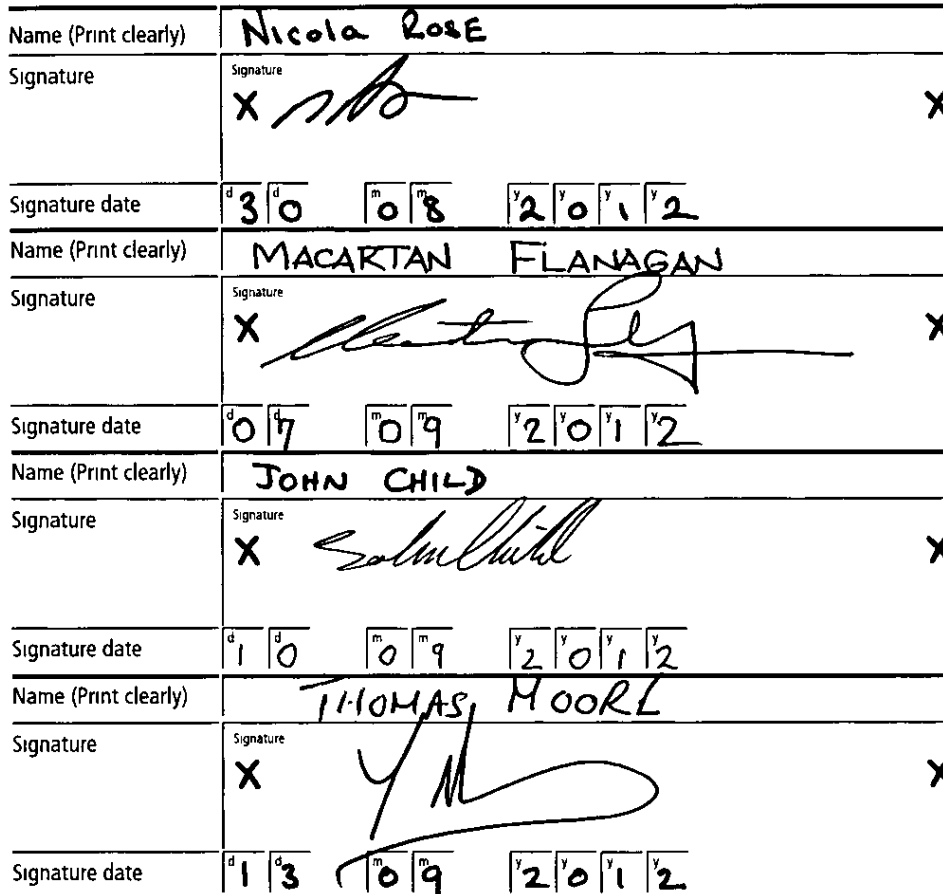 Name (Print clearly) Nicola ROSE
Signature Signature
X X
Signature date d3 d0 m0 m8 y2 y0 y1 y2
Name (Print clearly) MACARTAN FLANAGAN
Signature Signature
X X
Signature date d0 d7 m0 m9 y2 y0 y1 y2
Name (Print clearly) JOHN CHILD
Signature Signature
X John Child X
Signature date d1 d0 m0 m9 y2 y0 y1 y2
Name (Print clearly) THOMAS MOORE
Signature Signature
X X
Signature date d1 d3 m0 m9 y2 y0 y1 y2